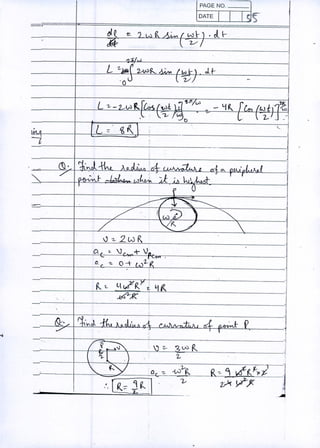 PAGE NO.
DATE 55
dl/dt = 2ωR sin(ωt/2)·dt
L = ∫₀^{2π/ω} 2ωR sin(ωt/2)·dt
L = -2ωR [Cos(ωt/2)]₀^{2π/ω} = -4R [Cos(ωt/2)]
L = 8R
Q. Find the radius of curvature of a peripheral
point when when it is highest.
P
ω
R
v = 2ωR
a_c = v_cm + v_Pcm
a_c = 0 + ω²R
R = 4ω²R²/ω²R = 4R
Q. Find the radius of curvature of point P.
P
R/2
v
R
v = 3ωR/2
a_c = ω²R/2 R = 9ω²R²×2/24ω²R
∴ R = 9R/2